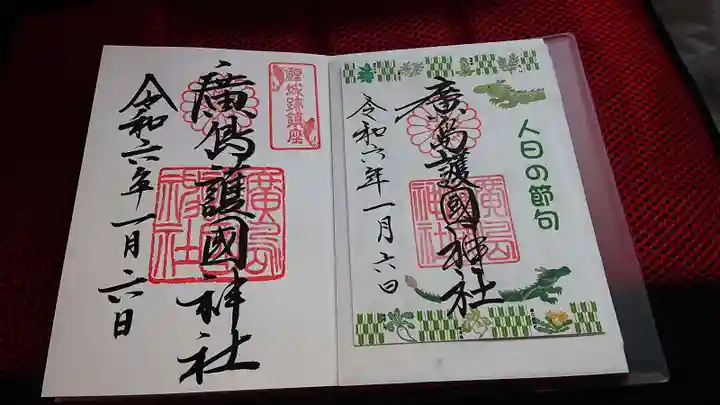 鯉城跡鎮座
廣島護國神社
令和六年一月六日
廣島護國神社
人日の節句
廣島護國神社
令和六年一月六日